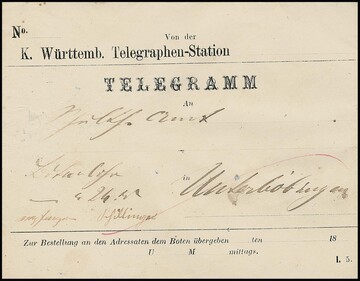 No.
Von der
K. Württemb. Telegraphen-Station
TELEGRAMM
An
Amt
in Unterböbingen
Zur Bestellung an den Adressaten dem Boten übergeben ten 18
U M mittags.
I. 5.